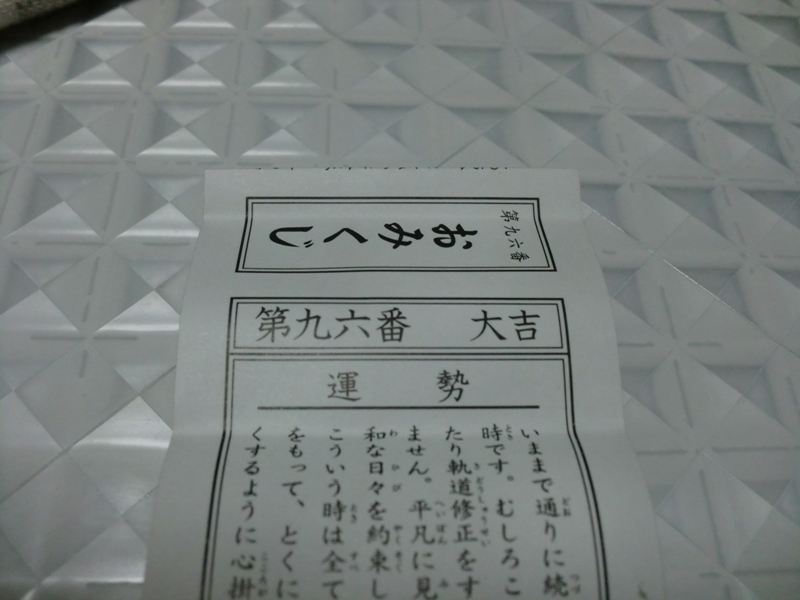 第九六番
おみくじ
第九六番 大吉
運勢
いままで通りに続
時です。むしろこ
たり軌道修正をす
ません。平凡に見
和な日々を約束し
こういう時は全て
をもって、とくに
くするように心掛